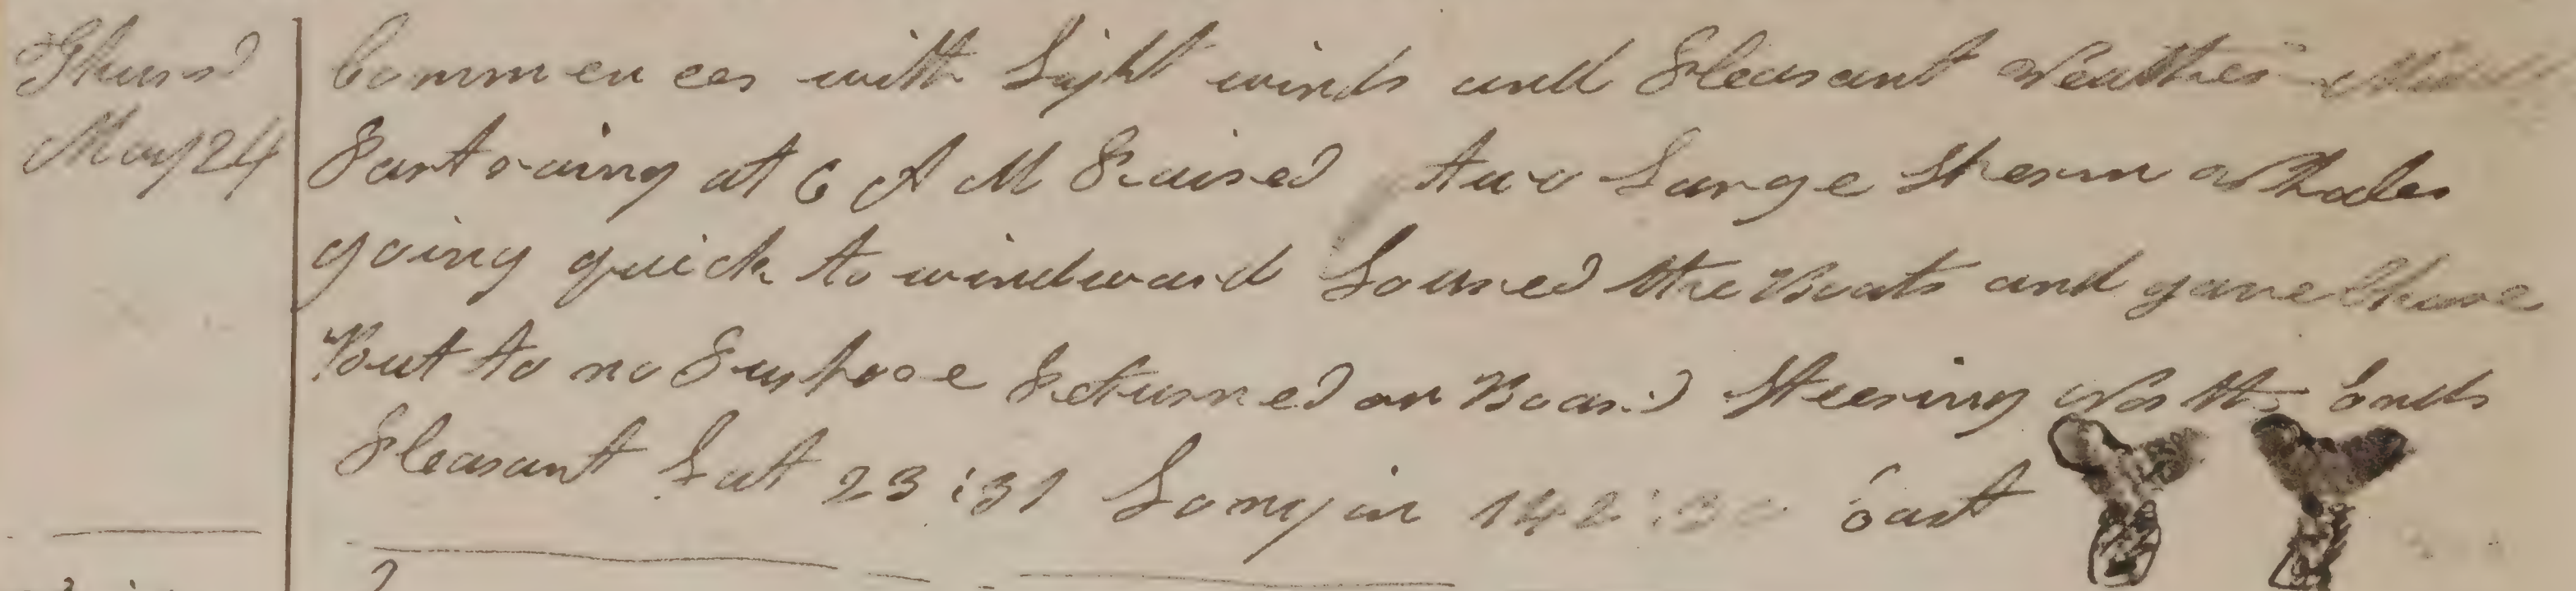 Thursd
May 24
Commences with Light winds and Pleasant Weather Middle
Part raing at 6 A M Raised two Large Sperm Whales
going quick to windward Loured the Boats and gave Chase
But to no Purpose Returned on Board Steering North Ends
Pleasant Lat 23:31 Longin 142:30 East